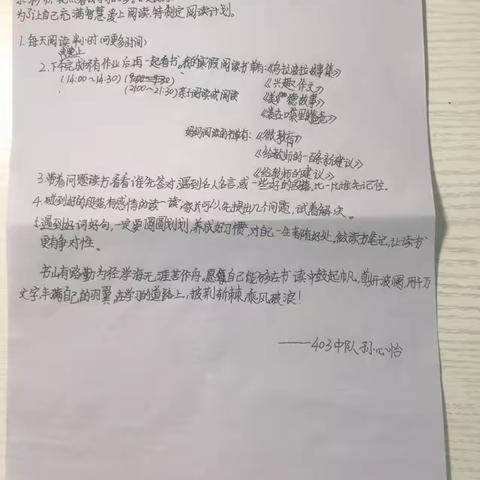 为了让自己充满智慧,爱上阅读,特制定阅读计划。
1. 每天阅读半小时(可更多时间)
晚上
2. 下午完成所有作业后再一起看书。我的寒假阅读书单有:《乌拉波拉故事集》
(14:00~14:30) 《兴趣作文》
(21:00~21:30)亲子阅读或阅读 《故事》
《装在口袋里的爸爸》
妈妈阅读的书单有:《微教育》
《给教师的一百条新建议》
《给教师的建议》
3. 带着问题读书看看谁先答对,遇到名人名言,或一些好的段落,比一比谁先记住。
4. 感到好的段落有感情的读一读,先提出几个问题,试着解决。
5. 遇到好词好句,一定要圈圈划划,养成好习惯,对自己一生都有好处。做读书笔记,让读书
更有争对性。
书山有路勤为径,学海无涯苦作舟,愿每自己能够在书读中鼓起帆,前开波澜,用千万
文字,丰满自己的羽翼,在学习的道路上,披荆斩棘,乘风破浪!
——403中队 孙心怡